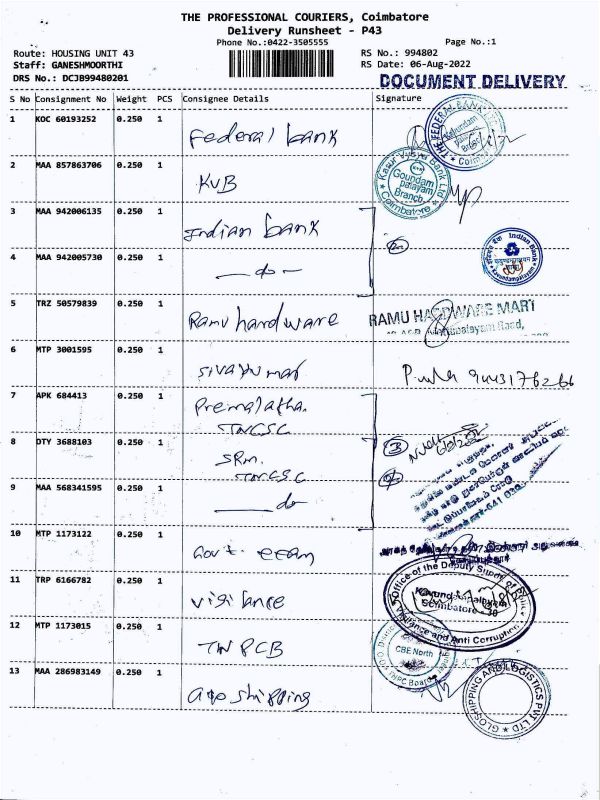 THE PROFESSIONAL COURIERS, Coimbatore
Delivery Runsheet - P43
Phone No.:0422-3505555
Page No.:1
Route: HOUSING UNIT 43
RS No.: 994802
Staff: GANESHMOORTHI
RS Date: 06-Aug-2022
DRS No.: DCJB99480201
DOCUMENT DELIVERY
S No Consignment No Weight PCS Consignee Details Signature
1 KOC 60193252 0.250 1 Federal bank
THE FEDERAL BANK
2 MAA 857863706 0.250 1 KVB
Karur Vysya Bank Ltd
Goundam
palayam
Branch
Coimbatore
3 MAA 942006135 0.250 1 Indian bank
Indian Bank
4 MAA 942005730 0.250 1 —do—
5 TRZ 50579839 0.250 1 Ramu hardware
RAMU HARDWARE MART
6 MTP 3001595 0.250 1 Sivakumar
7 APK 684413 0.250 1 Premalatha.
TNCSC
3
8 DTY 3688103 0.250 1 SRM.
TNCSC
9 MAA 568341595 0.250 1 —do—
10 MTP 1173122 0.250 1 Govt. exam
11 TRP 6166782 0.250 1 Vigilance
Office of the Deputy Supdt of Police
Kavundampalayam
Coimbatore - 30
Vigilance and Anti Corruption
12 MTP 1173015 0.250 1 TNPCB
CBE North
TNPC Board
13 MAA 286983149 0.250 1 Glo shipping
GLOSHIPPING AND LOGISTICS PVT LTD